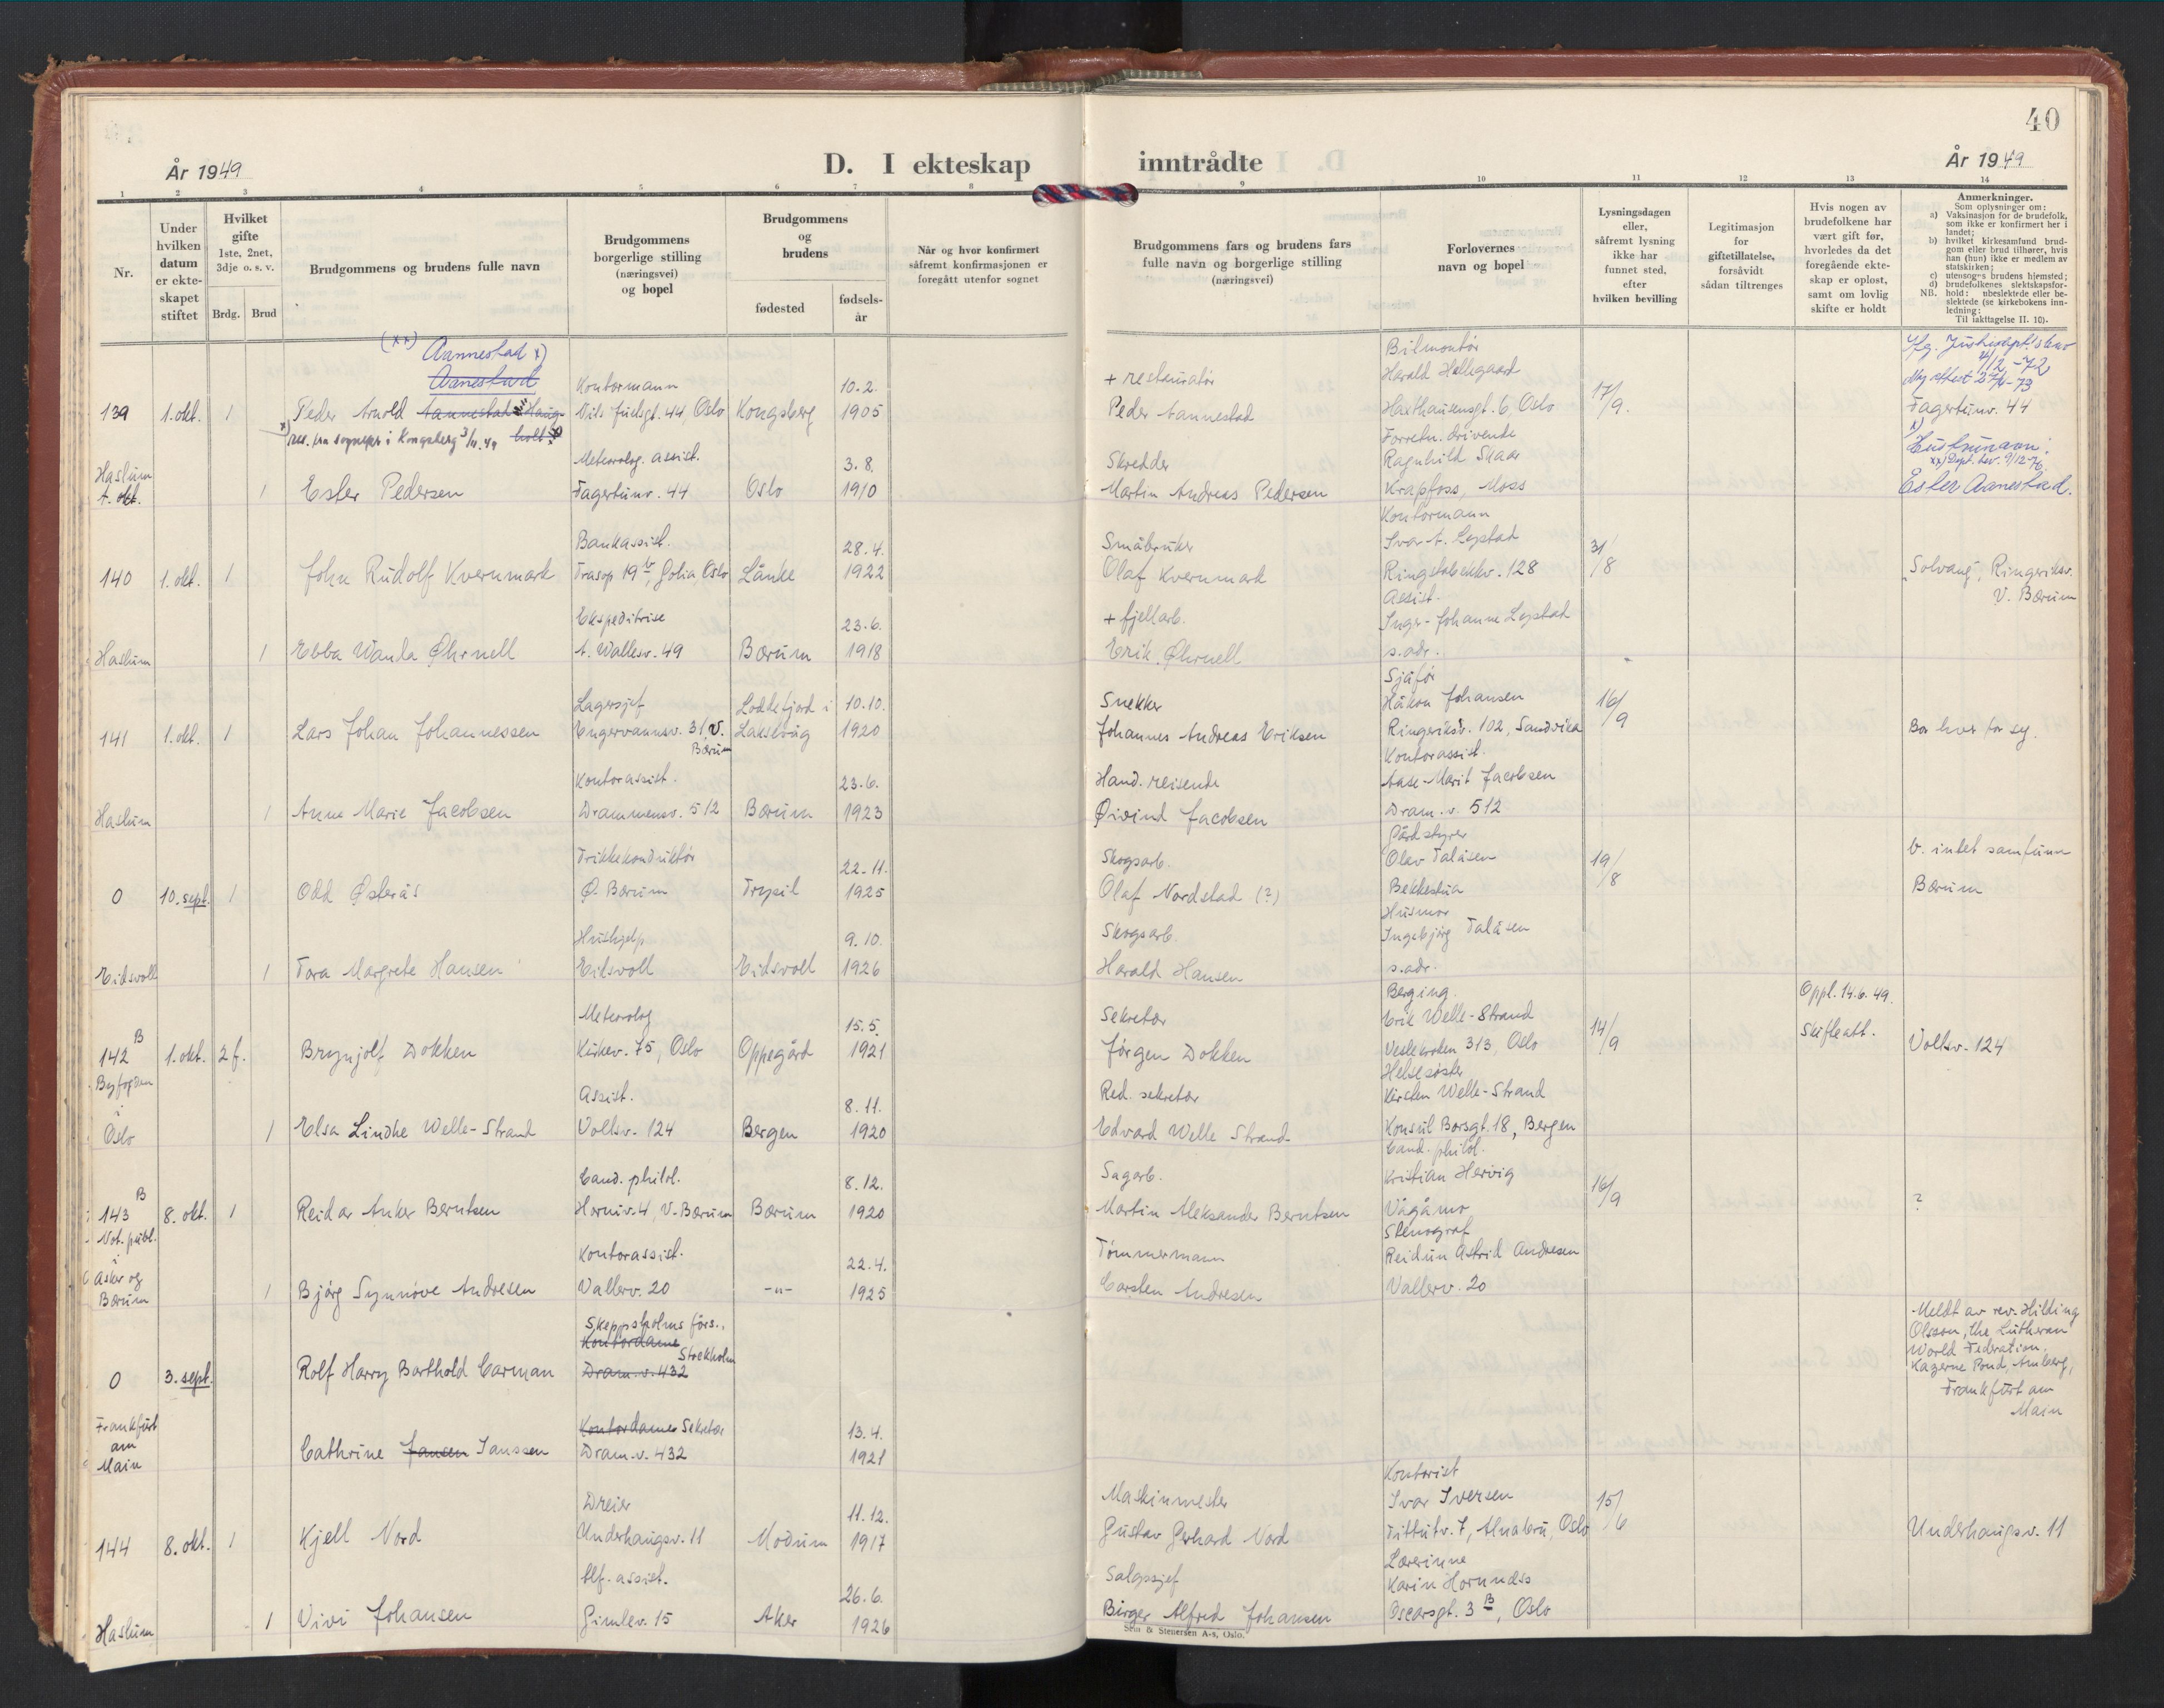 40
År 1949
D. I ekteskap inntrådte
År 1949
1 2 3 4 5 6 7 8 9 10 11 12 13 14
Nr.
Under hvilken datum er ekteskapet stiftet
Hvilket gifte
1ste, 2net, 3dje o. s. v.
Brdg. Brud
Brudgommens og brudens fulle navn
Brudgommens borgerlige stilling
(næringsvei)
og bopel
Brudgommens og brudens
fødested
fødsels-år
Når og hvor konfirmert
såfremt konfirmasjonen er
foregått utenfor sognet
Brudgommens fars og brudens fars
fulle navn og borgerlige stilling
(næringsvei)
Forlovernes
navn og bopel
Lysningsdagen
eller,
såfremt lysning
ikke har
funnet sted,
efter
hvilken bevilling
Legitimasjon
for
giftetillatelse,
forsåvidt
sådan tiltrenges
Hvis nogen av
brudefolkene har
vært gift før,
hvorledes da det
foregående ekte-
skap er opløst,
samt om lovlig
skifte er holdt
Anmerkninger.
Som oplysninger om:
a) Vaksinasjon for de brudefolk,
som ikke er konfirmert her i
landet;
b) hvilket kirkesamfund brud-
gom eller brud tilhører, hvis
han (hun) ikke er medlem av
statskirken;
c) utensogns brudens hjemsted;
d) brudefolkenes slektskapsfor-
hold: ubeslektede eller be-
slektede (se kirkebokens inn-
ledning:
NB. Til iakttagelse II. 10).
(xx) Aannestad x)
Aanestad
139 1. okt. 1 Peder Arnold Aannestad Haug-
holt
Kontormann
Nils Juelsgt. 44, Oslo Kongsberg 10.2. 1905
+ restauratør
Peder Aannestad
Bilmontør
Harald Hellegaard
Haxthausensgt. 6, Oslo
17/9.
4/12-72
27/6-73
Fagertunv. 44
x) i Kongsberg 3/11.49
Haslum
1 Ester Pedersen
Meteorolog. assist.
Fagertunv. 44 Oslo 3.8. 1910
Skredder
Martin Andreas Pedersen
Forretn. drivende
Ragnhild Skaar
Krapfoss, Moss
x)
xx) Dept. bev. 9/12-76
Ester Aanestad.
140 1. okt. 1 John Rudolf Kvernmark
Bankassist.
Trasop 19 b, Golia, Oslo Lånke 28.4. 1922
Småbruker
Olaf Kvernmark
Kontormann
Ivar A. Lepstad
Ringstabekkv. 128
31/8
"Solvang", Ringeriksv.
V. Bærum
Haslum
1 Ebba Wanda Øhrnell
Ekspeditrise
A. Wallesv. 49 Bærum 23.6. 1918
+ fjellarb.
Erik Øhrnell
Assist.
Inger-Johanne Lepstad
s. adr.
141 1. okt. 1 Lars Johan Johannessen
Lagersjef
Engervannsv. 31, V. Bærum
Loddefjord i Laksevåg 10.10. 1920
Snekker
Johannes Andreas Eriksen
Sjåfør
Håkon Johansen
Ringeriksv. 102, Sandvika
16/9
Bor hver for seg.
Haslum
1 Anne Marie Jacobsen
Kontorassist.
Drammensv. 512 Bærum 23.6. 1923
Hand. reisende
Øivind Jacobsen
Kontorassist.
Aase-Marit Jacobsen
Dram. v. 512
0 10. sept. 1 Odd Østerås
Trikkekonduktør
Ø. Bærum Trysil 22.11. 1925
Skogsarb.
Olaf Nordstad (?)
Gårdstyrer
Olav Talåsen
Bekkestua
19/8
b. intet samfunn
Bærum
Eidsvoll
1 Tora Margrete Hansen
Hushjelp
Eidsvoll Eidsvoll 9.10. 1926
Skogsarb.
Harald Hansen
Husmor
Ingebjørg Talåsen
s. adr.
142 B 1. okt. 2 f. Brynjolf Dokken
Meteorolog
Kirkev. 75, Oslo Oppegård 15.5. 1921
Sekretær
Jørgen Dokken
Berging.
Erik Welle-Strand
Veslekroken 313, Oslo
14/9
Oppl. 14.6.49.
Skifteatt.
Vollsv. 124
Byfogden
i
Oslo
1 Elsa Lindhe Welle-Strand
Assist.
Vollsv. 124 Bergen 8.11. 1920
Red. sekretær
Edvard Welle Strand
Helsesøster
Kirsten Welle-Strand
Konsul Børsgt. 18, Bergen
143 B 8. okt. 1 Reidar Anker Berntsen
Cand. philol.
Horniv. 4, V. Bærum Bærum 8.12. 1920
Sagarb.
Martin Aleksander Berntsen
Cand. philol.
Kristian Hervig
Vågåmo
16/9
?
Not. publ.
i
Asker og
Bærum
1 Bjørg Synnøve Andresen
Kontorassist.
Vallerv. 20 -"- 22.4. 1925
Tømmermann
Carsten Andresen
Stenograf
Reidun Astrid Andresen
Vallerv. 20
0 3. sept. Rolf Harry Barthold Carman
Skeppsholms förs.,
Kontordame Stockholm
Dram. v. 432
Meldt av rev. Hilding
Olsson, the Lutheran
World Federation,
Kaserne Pond, Amberg,
Frankfurt am
Main
Frankfurt
am
Main
Cathrine Jansen Janssen
Kontordame Sekretær
Dram. v. 432 13.4. 1921
144 8. okt. 1 Kjell Nord
Dreier
Underhaugsv. 11 Modum 11.12. 1917
Maskinmester
Gustav Gerhard Nord
Kontorist
Ivar Iversen
Tittutv. 7, Alnabru, Oslo
15/6
Underhaugsv. 11
Haslum
1 Vivi Johansen
tlf. assist.
Gimlev. 15 Aker 26.6. 1926
Salgssjef
Birger Alfred Johansen
Lærerinne
Karin Hornnes
Oscarsgt. 3 B, Oslo
Sem & Stenersen A-s, Oslo.